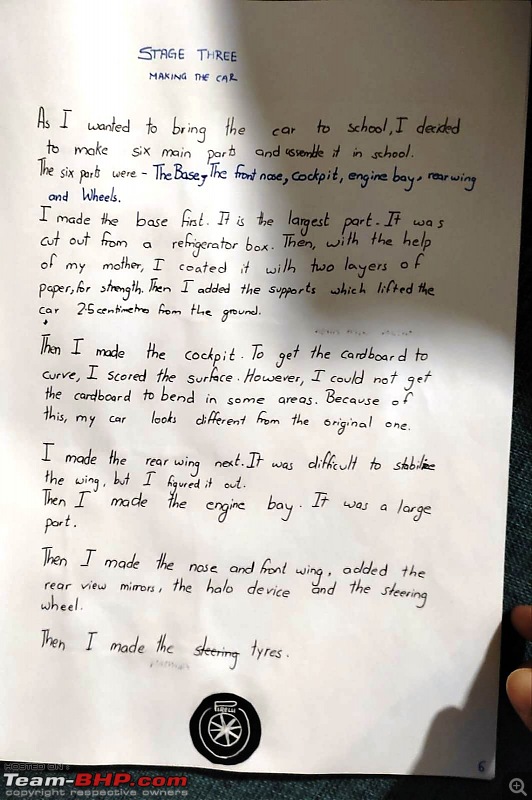 STAGE THREE
MAKING THE CAR
As I wanted to bring the car to school, I decided
to make six main parts and assemble it in school.
The six parts were - The Base, The front nose, cockpit, engine bay, rear wing
and Wheels.
I made the base first. It is the largest part. It was
cut out from a refrigerator box. Then, with the help
of my mother, I coated it with two layers of
paper, for strength. Then I added the supports which lifted the
car 2.5 centimetre from the ground.
Then I made the cockpit. To get the cardboard to
curve, I scored the surface. However, I could not get
the cardboard to bend in some areas. Because of
this, my car looks different from the original one.
I made the rear wing next. It was difficult to stabilize
the wing, but I figured it out.
Then I made the engine bay. It was a large
part.
Then I made the nose and front wing, added the
rear view mirrors, the halo device and the steering
wheel.
Then I made the steering tyres.
PIRELLI
6
HOSTED ON
Team-BHP.com
copyright respective owners